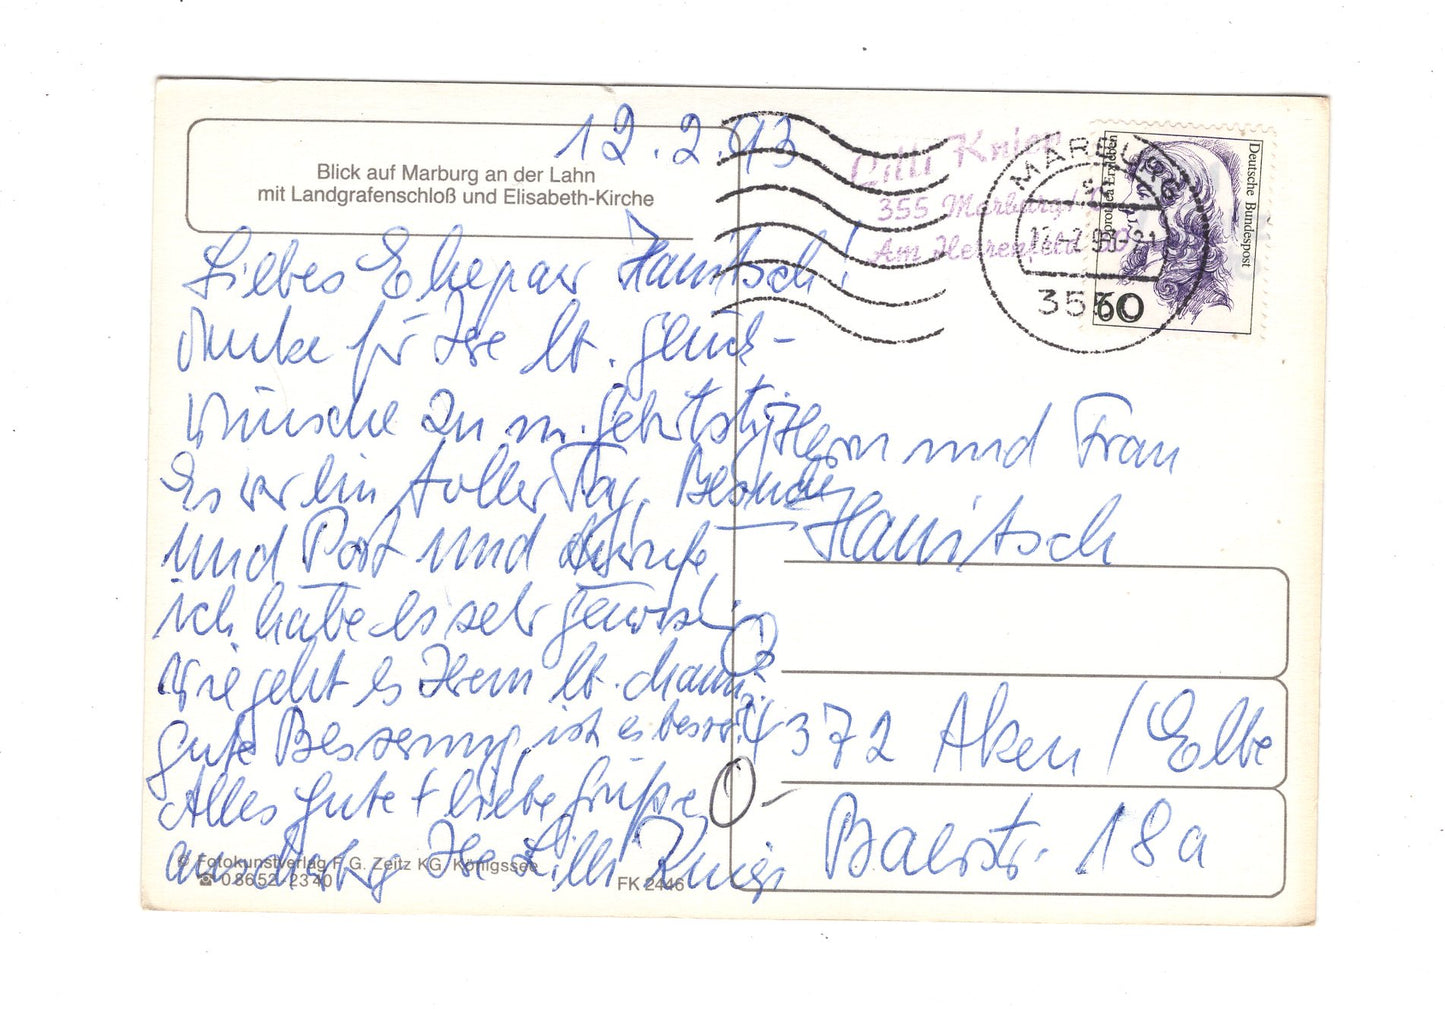 12.2.93
Blick auf Marburg an der Lahn
mit Landgrafenschloß und Elisabeth-Kirche
Liebes Ehepaar Hanitsch!
danke für Ihre lb. Glück-
wünsche zu m. Geburtstg
Es war ein toller Tag, Besuche
und Post und Anrufe
ich habe es sehr genossen
wie geht es Ihrem lb. Mann?
gute Besserung, ist es besser?
Alles Gute + liebe Grüße
Ihre Lilli Knier
© Fotokunstverlag F. G. Zeitz KG, Königssee
☎ 08652 2340
FK 2446
Lilli Knier
355 Marburg/
Am Herrenfeld
MARBURG
12.2.93-21
355
Dorothea Erxleben
Deutsche Bundespost
60
Herrn und Frau
Hanitsch
4372 Aken / Elbe
Baerstr. 18a